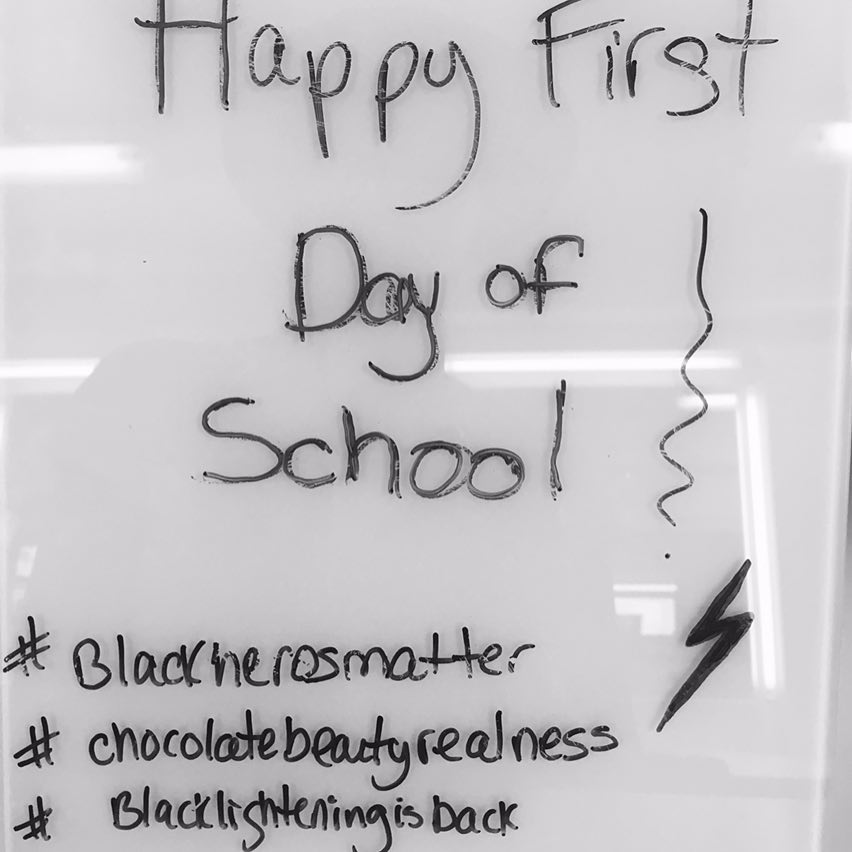 Happy First
Day of
School
# Blackherosmatter
# chocolatebeautyrealness
# Blacklighteningisback